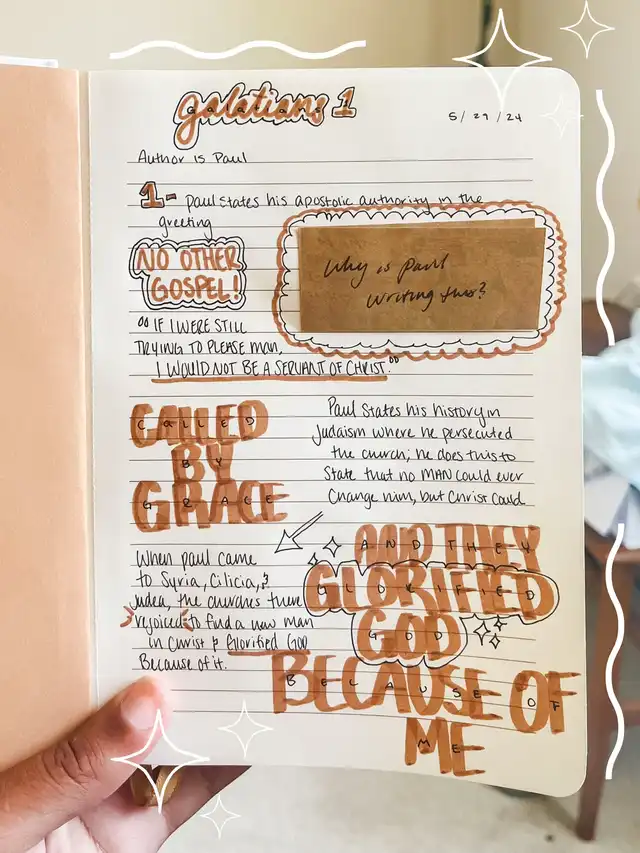 galatians 1
5/29/24
Author is Paul
1- paul states his apostolic authority in the
greeting
NO OTHER
GOSPEL!
Why is paul
writing this?
"IF I WERE STILL
TRYING TO PLEASE man,
I WOULD NOT BE A SERVANT OF CHRIST."
CALLED
BY
GRACE
Paul States his history in
Judaism where he persecuted
the church; he does this to
State that no MAN could ever
Change him, but Christ could
When paul came
to Syria, Cilicia, &
Judea, the churches there
rejoiced to find a new man
in Christ & Glorified God
Because of it.
AND THEY
GLORIFIED
GOD
BECAUSE OF
ME